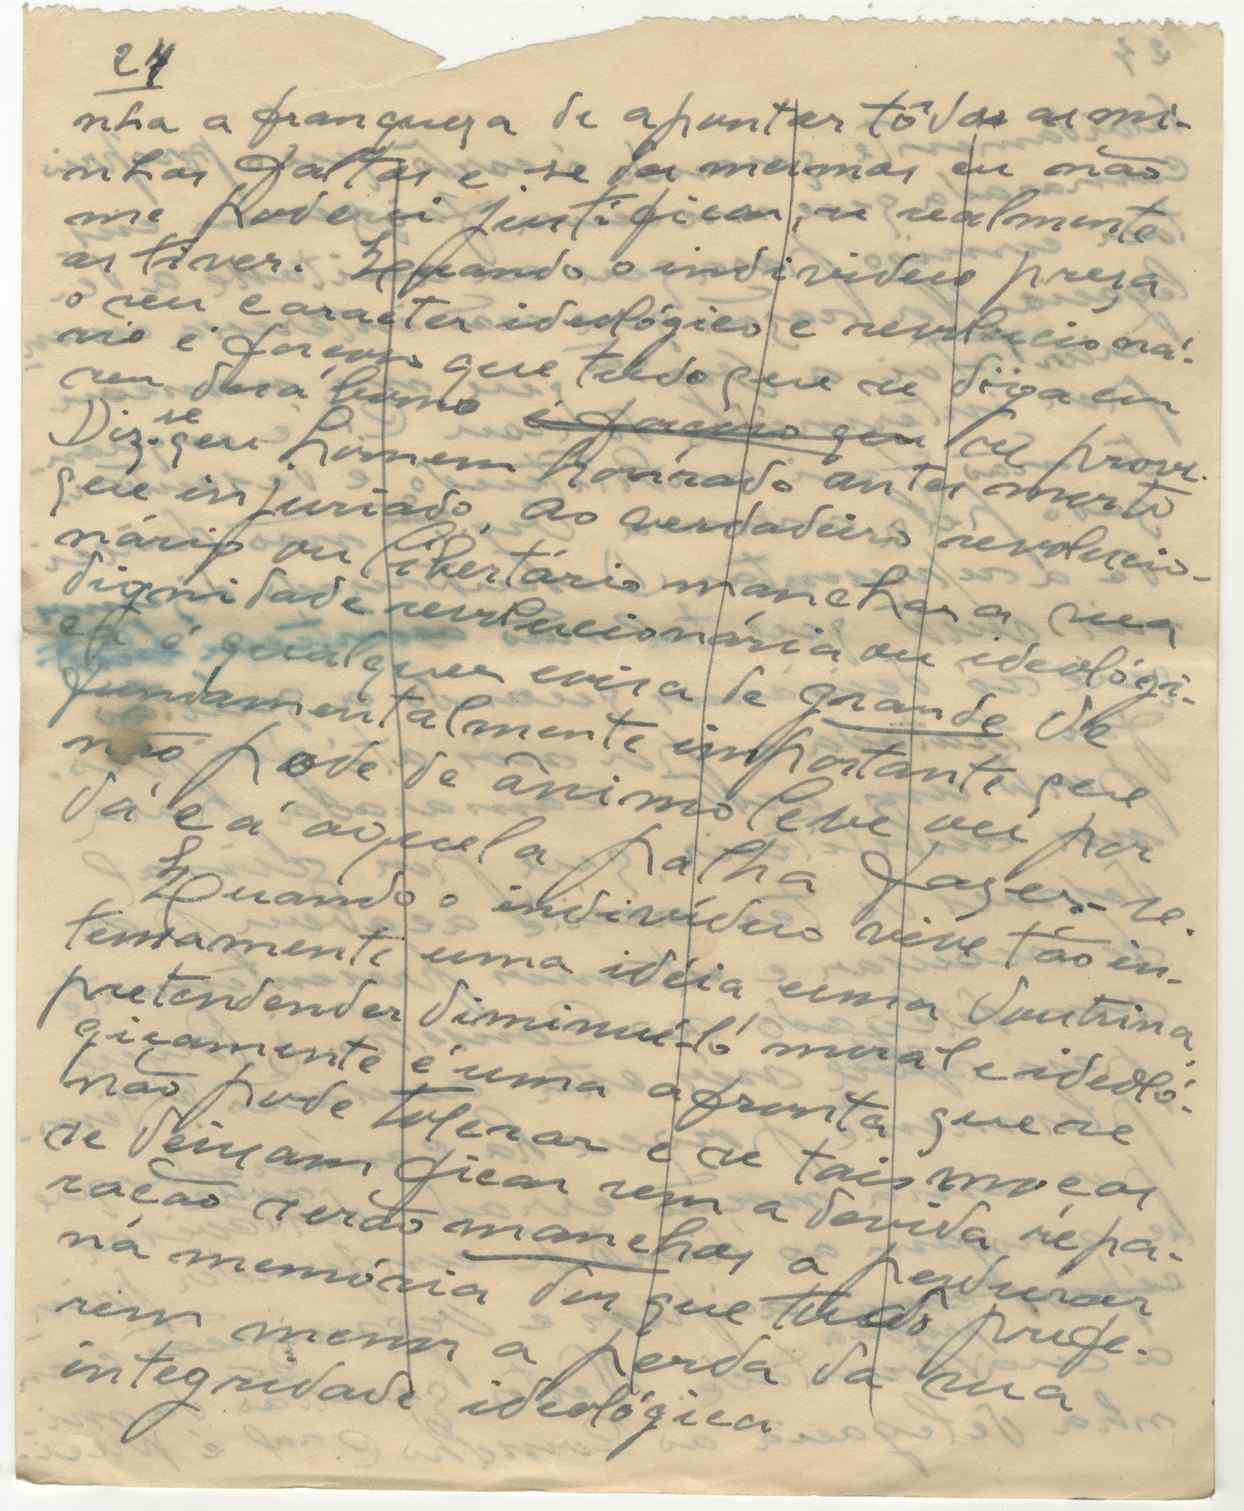 24
nha a franqueza de apontar tôdas as mi-
nhas faltas e se das mesmas eu não
me poderei justificar, se realmente
as tiver. Quando o individuo preza
o seu caracter ideológico e revolucioná-
rio é forçoso que tudo que se diga em
seu desabono é forçoso que se prove.
Diz-se que homem honrado antes morto
que injuriado. Ao verdadeiro revolucio-
nário ou libertário manchar a sua
dignidade revolucionária ou ideológi-
ca é qualquer coisa de grande de
fundamentalmente importante que
não pode de ânimo leve ou por
dá cá aquela palha fazer-se.
Quando o individuo vive tão in-
tensamente uma idéia e uma doutrina,
pretendender diminuí-lo moral e ideoló-
gicamente é uma afronta que se
não pode tolerar e se tais mocas
se deixam ficar sem a devida repa-
ração serão manchas a perdurar
na memória dos que tudo prefe-
rem menos a perda da sua
integridade ideológica